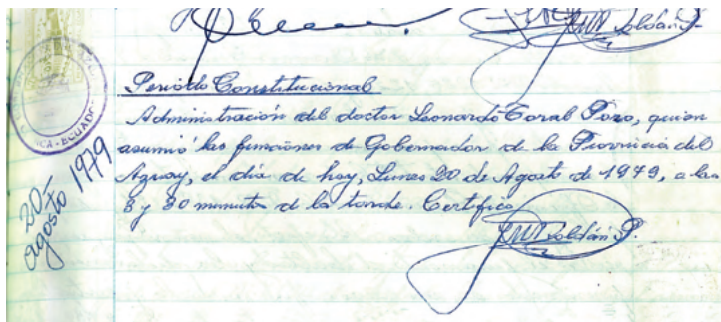 Roldán P.
Período Constitucional
Administración del doctor Leonardo Toral Pozo, quien
asumió las funciones de Gobernador de la Provincia del
Azuay, el día de hoy, Lunes 20 de Agosto de 1979, a las
3 y 30 minutos de la tarde. Certifico
Roldán P.
20-
agosto 1979
CA - ECUADOR